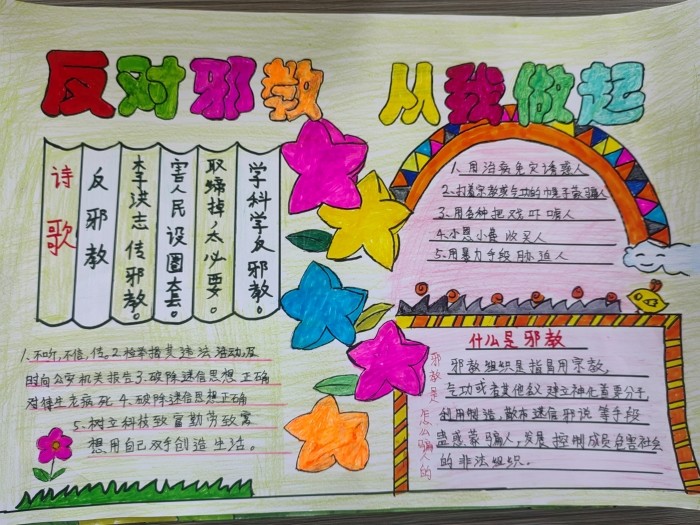 反对邪教 从我做起
诗歌
反邪教
李洪志传邪教。
害人民设圈套。
取缔掉,太必要。
学科学反邪教。
1、用治病免灾诱惑人
2、打着宗教或气功的巾晃子欺骗人
3、用各种把戏吓唬人
4、小恩小惠收买人
5、用暴力手段胁迫人
1、不听,不信,传。2、检举揭其违法活动,及
时向公安机关报告3、破除迷信思想正确
对待生老病死 4、破除迷信思想正确
5、树立科技致富勤劳致富
想用自己双手创造生活。
什么是邪教
邪教组织是指冒用宗教,
气功或者其他名义建立神化首要分子
利用制造,散布迷信邪说等手段
蛊惑蒙骗人,发展控制成员危害社会
的非法组织。
邪教是怎么骗人的